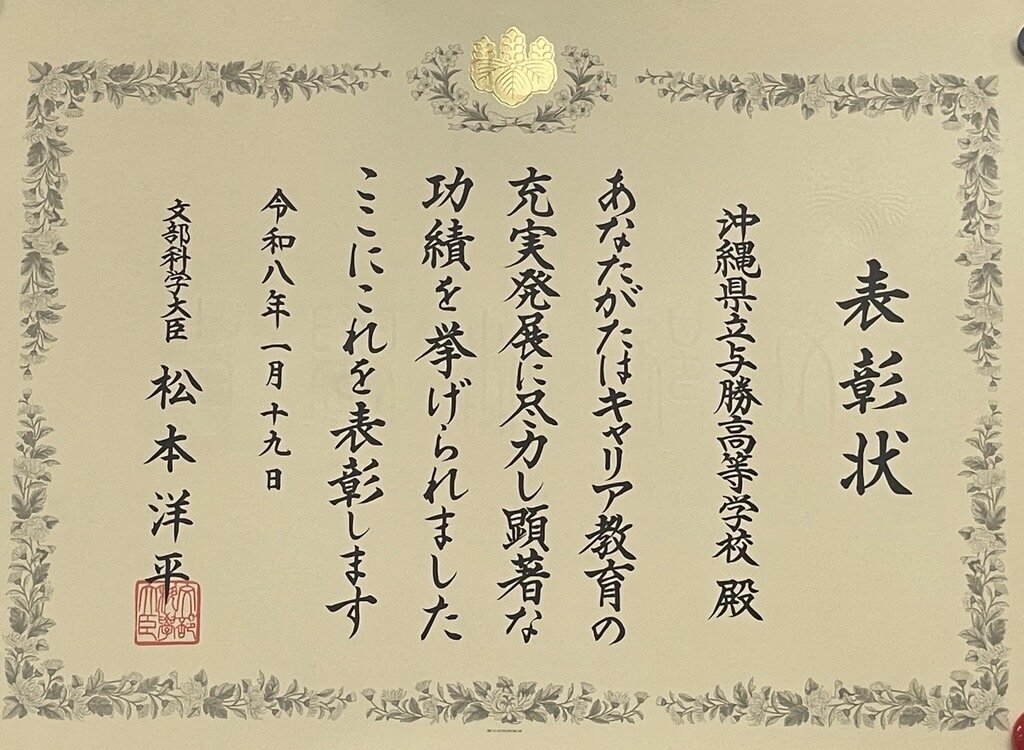 表彰状
沖縄県立与勝高等学校 殿
あなたがたはキャリア教育の
充実発展に尽力し顕著な
功績を挙げられました
ここにこれを表彰します
令和八年一月十九日
文部科学大臣 松本洋平
文部
科学
大臣